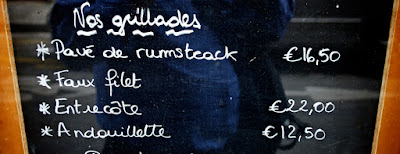 Nos grillades
* Pavé de rumsteack €16,50
* Faux filet
* Entrecôte €22,00
* Andouillette €12,50